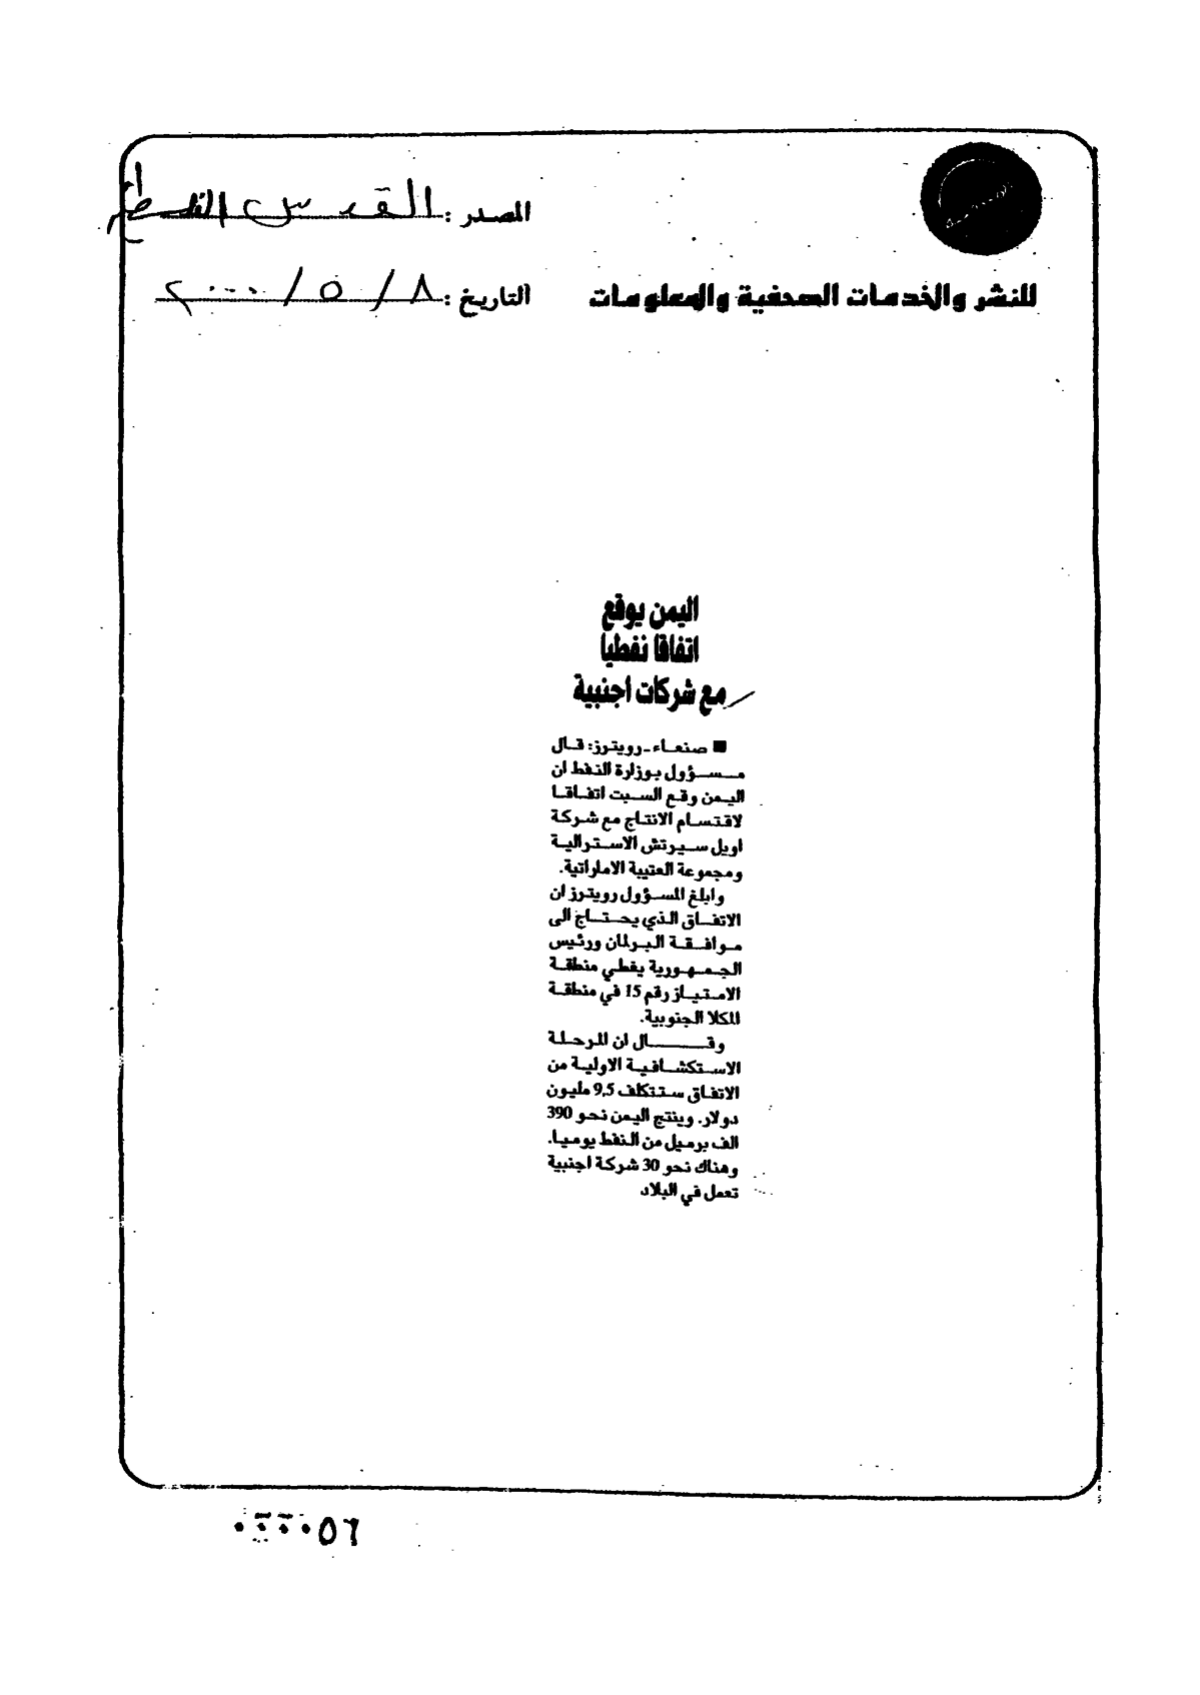 المصدر : القدس
التاريخ : ٨ / ٥ / ٢٠٠٠
للنشر والخدمات الصحفية والمعلومات
اليمن يوقع
اتفاقا نفطيا
مع شركات اجنبية
■ صنعاء-رويترز: قال
مسؤول بوزارة النفط ان
اليمن وقع السبت اتفاقا
لاقتسام الانتاج مع شركة
اويل سيرتش الاسترالية
ومجموعة العتيبة الاماراتية.
وابلغ المسؤول رويترز ان
الاتفاق الذي يحتاج الى
موافقة البرلمان ورئيس
الجمهورية يغطي منطقة
الامتياز رقم 15 في منطقة
المكلا الجنوبية.
وقال ان المرحلة
الاستكشافية الاولية من
الاتفاق ستتكلف 9,5 مليون
دولار. وينتج اليمن نحو 390
الف برميل من النفط يوميا.
وهناك نحو 30 شركة اجنبية
تعمل في البلاد